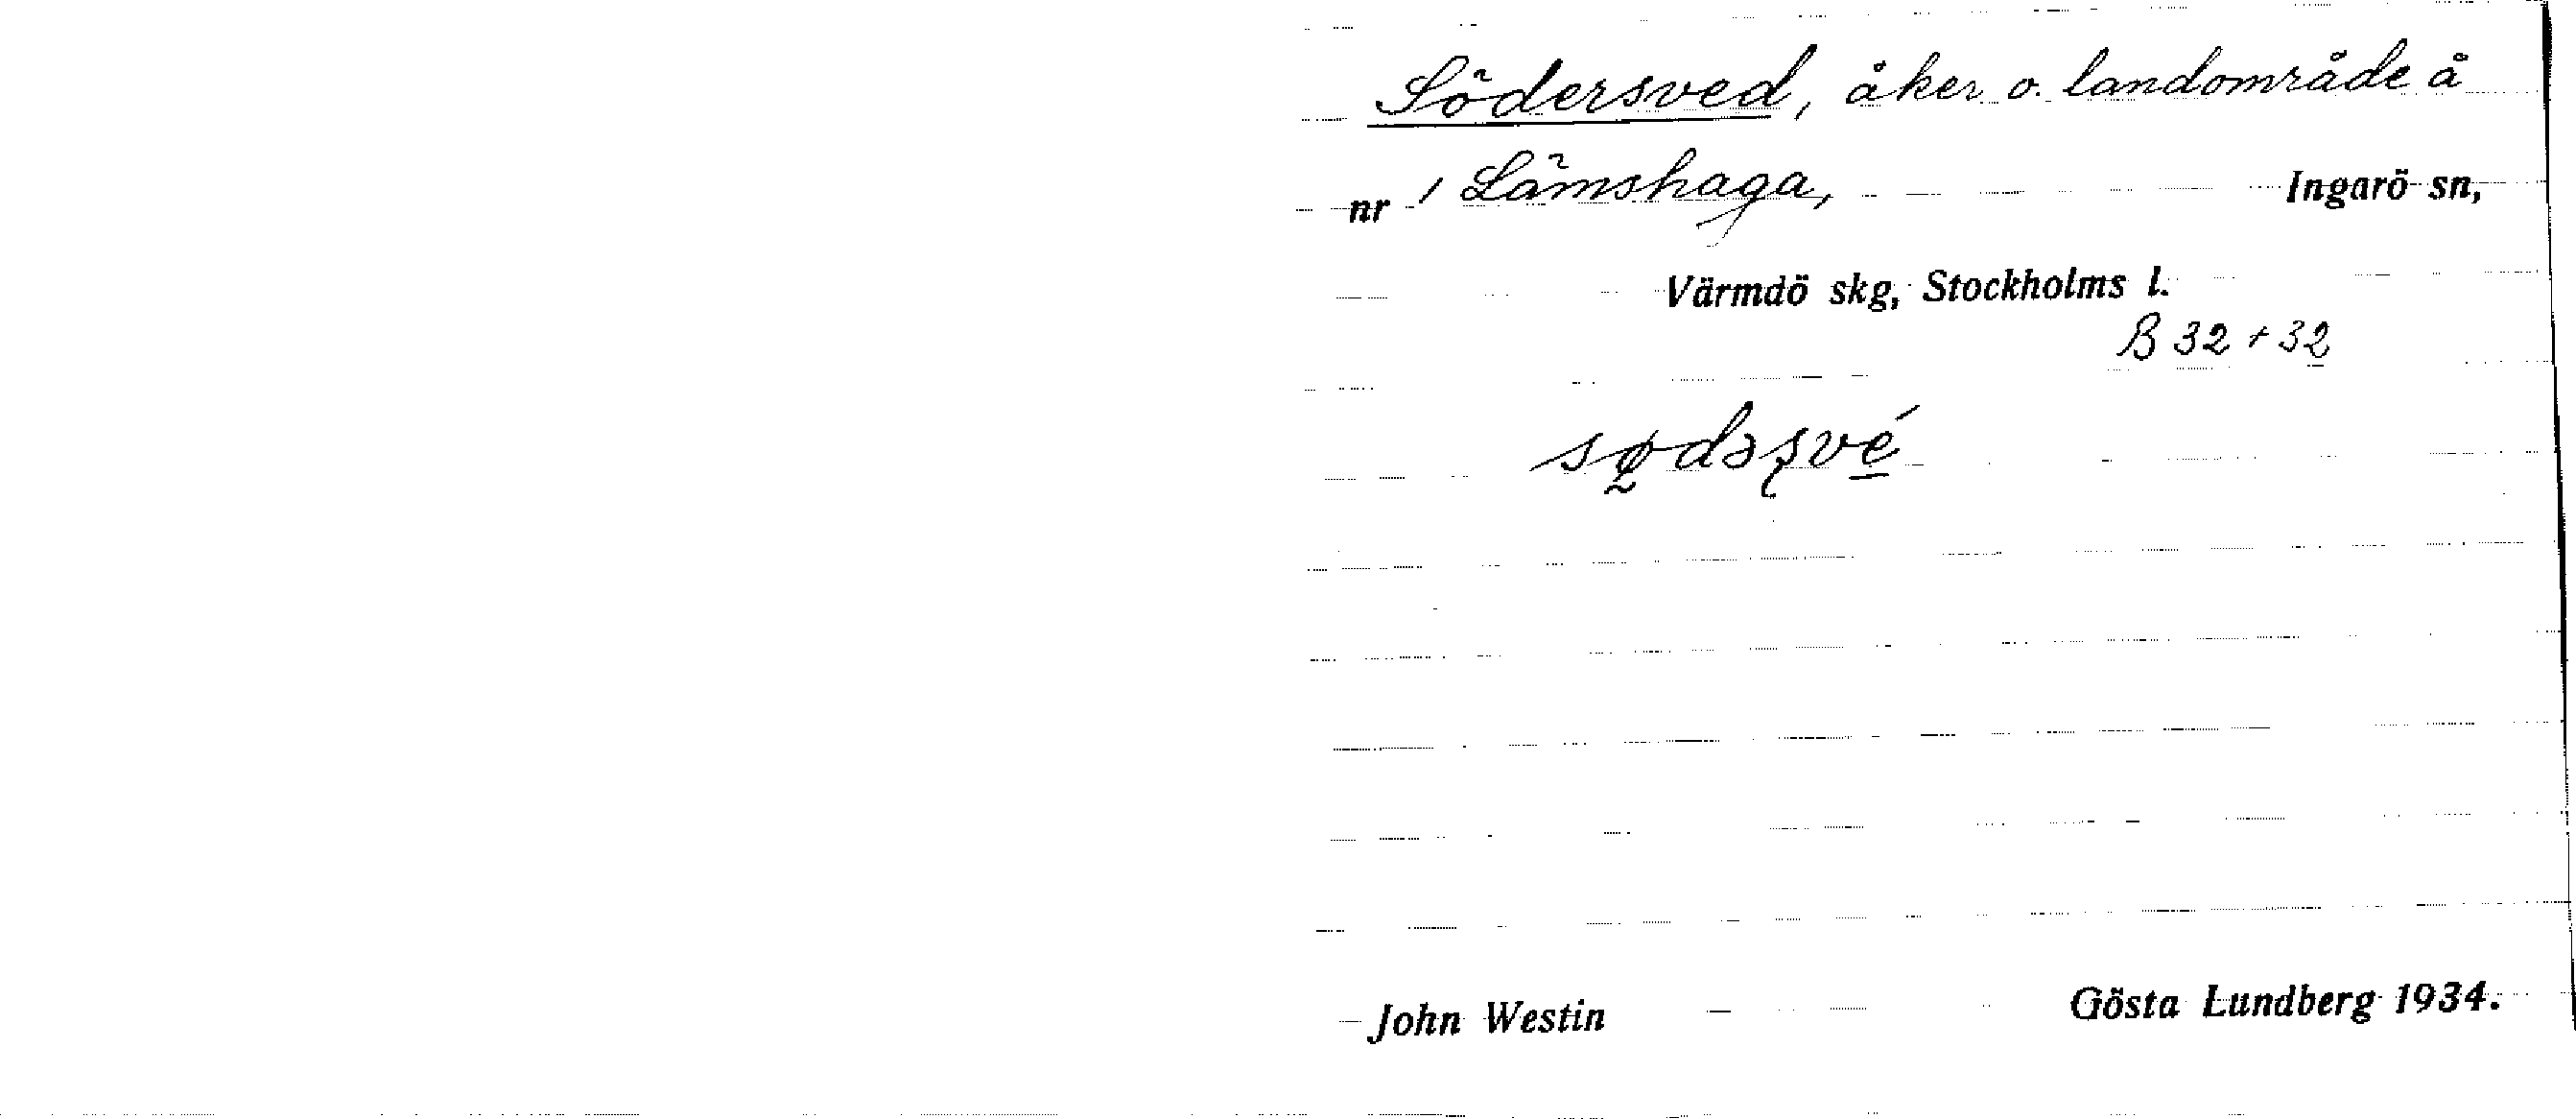 Södersved, åker o. landområde å
nr 1 Lämshaga, Ingarö sn,
Värmdö skg, Stockholms l.
B 32 + 32
sø̰dəʂvé̱
John Westin Gösta Lundberg 1934.